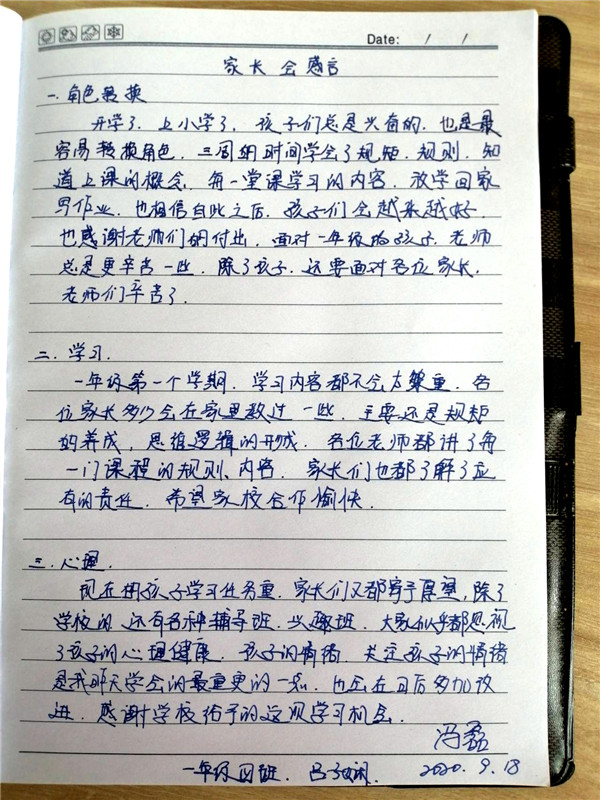 Date: / /
家长会感言
一.角色转换
开学了,上小学了,孩子们总是兴奋的,也是最
容易转换角色,三周的时间学会了规矩,规则,知
道上课的概念,每一堂课学习的内容,放学回家
写作业,也相信自此之后,孩子们会越来越好,
也感谢老师们的付出,面对一年级的孩子,老师
总是更辛苦一些,除了孩子,还要面对各位家长,
老师们辛苦了.
二.学习.
一年级第一个学期,学习内容都不会太繁重,各
位家长多少会在家里教过一些,主要还是规矩
的养成,思维逻辑的形成,各位老师都讲了每
一门课程的规则、内容,家长们也都了解了应
有的责任,希望家校合作愉快.
三.心理.
现在的孩子学习任务重,家长们又都寄予厚望,除了
学校的,还有各种辅导班,兴趣班,大家似乎都忽视
了孩子的心理健康,孩子的情绪,关注孩子的情绪
是我昨天学会的最重要的一点,也会在日后多加改
进,感谢学校给予的这次学习机会.
冯磊
一年级四班. 吕子娴. 2020.9.18